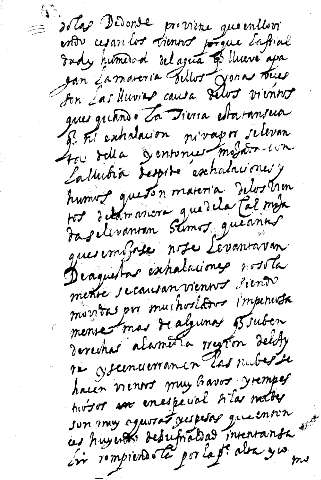 dolas De donde proviene que enllovi
endo cesan los vientos porque la frial
dad y humedad del agua q̄ llueve apa
gan la materia dellos y otras veces
son las lluvias causa de los vientos
que quando la Tierra esta tan seca
q̄ ni exhalacion ni vapor se levan
ta della y entonces mojada con
la llubia despide exhalaciones y
humos que son materia de los vien
tos de la manera que de la cal moja
da se levantan humos que antes
que se mojase no se levantavan
De aquestas exhalaciones no sola
mente se causan vientos siendo
movidas por muchos lados impetuosa
mente mas de algunas q̄ suben
derechas a la media region del Ay
re y se encierran en las nubes se
hacen vientos muy bravos y tempes
tuosos en especial si las nubes
son muy aquosas y espesas que enton
ces huyendo de su frialdad intentan sa
lir rompiendola por la pte alta y co
mo